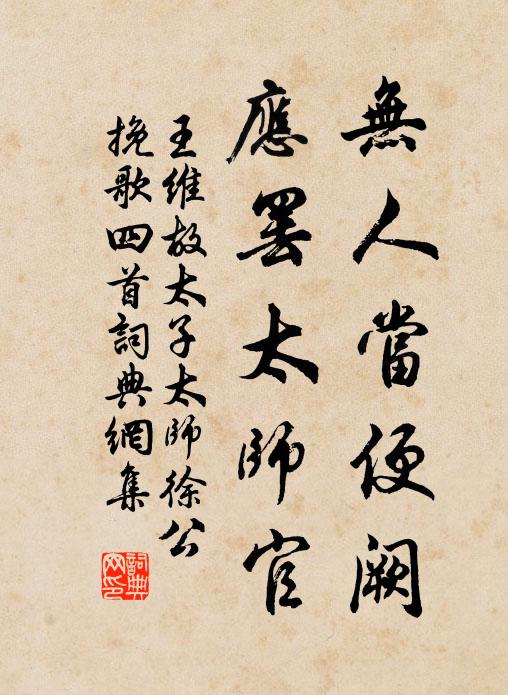 無人當便闕
應罢太師官
王維故太子太師徐公
挽歌四首詞典網集
詞典
网印